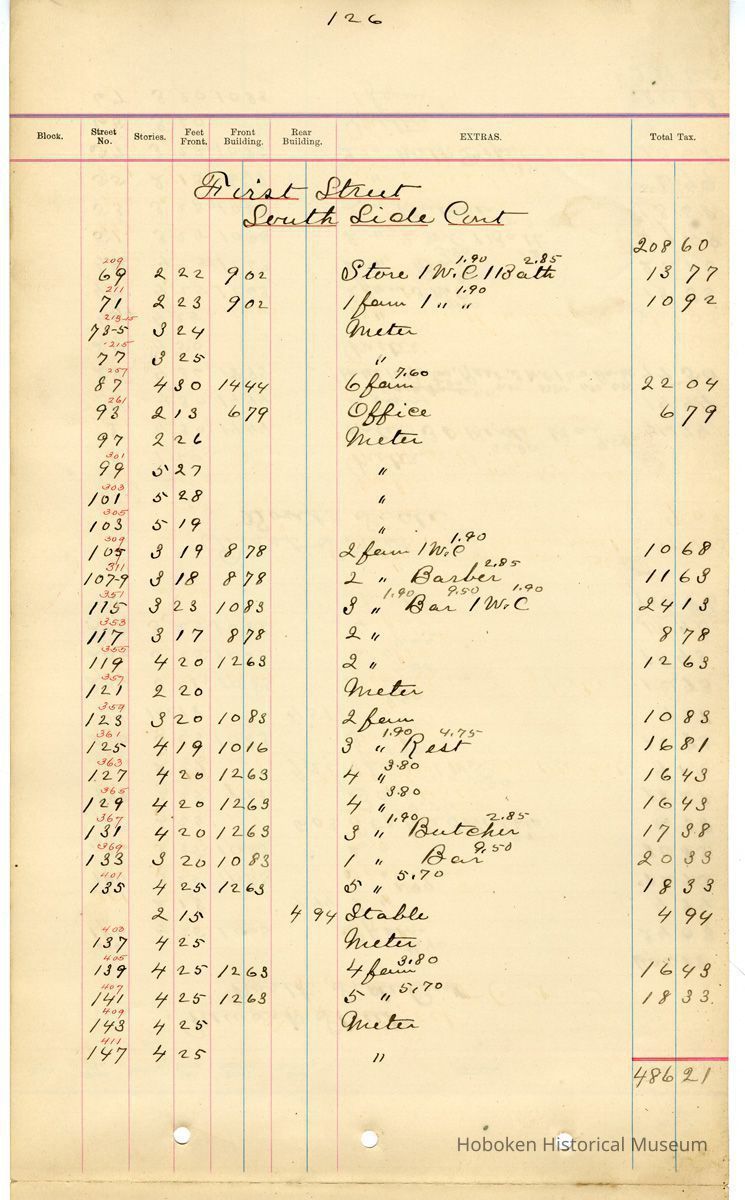 126
Block. Street No. Stories. Feet Front. Front Building. Rear Building. EXTRAS. Total Tax.
First Street
South Side Cont
208 60
209 1.90 2.85
69 2 22 9 02 Store 1 W.C 1 Bath 13 77
211 1.90
71 2 23 9 02 1 fam 1 " " 10 92
213-15
73-5 3 24 Meter
215
77 3 25 "
257 7.60
87 4 30 14 44 6 fam 22 04
261
93 2 13 6 79 Office 6 79
97 2 26 Meter
301
99 5 27 "
303
101 5 28 "
305
103 5 19 "
309 1.90
105 3 19 8 78 2 fam 1 W.C 10 68
311 2.85
107-9 3 18 8 78 2 " Barber 11 63
351 1.90 9.50 1.90
115 3 23 10 83 3 " Bar 1 W.C 24 13
353
117 3 17 8 78 2 " 8 78
355
119 4 20 12 63 2 " 12 63
357
121 2 20 Meter
359
123 3 20 10 83 2 fam 10 83
361 1.90 4.75
125 4 19 10 16 3 " Rest 16 81
363 3.80
127 4 20 12 63 4 " 16 43
365 3.80
129 4 20 12 63 4 " 16 43
367 1.90 2.85
131 4 20 12 63 3 " Butcher 17 38
369 9.50
133 3 20 10 83 1 " Bar 20 33
401 5.70
135 4 25 12 63 5 " 18 33
2 15 4 94 Stable 4 94
403
137 4 25 Meter
405 3.80
139 4 25 12 63 4 fam 16 43
407 5.70
141 4 25 12 63 5 " 18 33
409
143 4 25 Meter
411
147 4 25 "
486 21
Hoboken Historical Museum